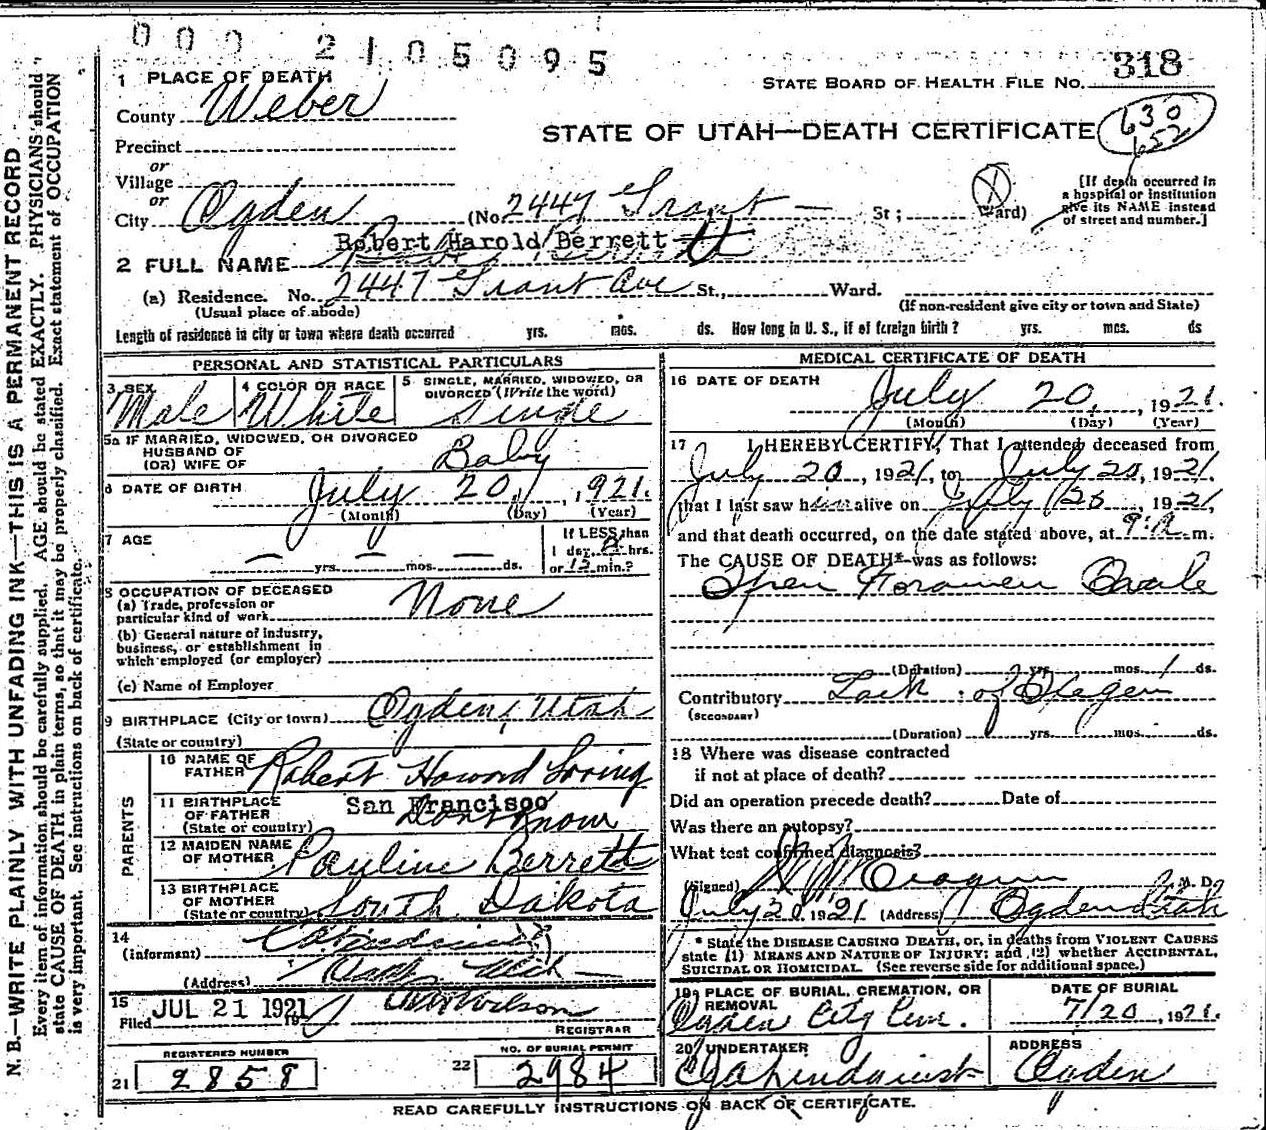 000 2105095
1 PLACE OF DEATH
STATE BOARD OF HEALTH FILE NO. 318
County Weber
STATE OF UTAH—DEATH CERTIFICATE
630
652
Precinct
or
Village
or
City Ogden (No. 2447 Grant St; Ward)
[If death occurred in
a hospital or institution
give its NAME instead
of street and number.]
Robert Harold Berrett
2 FULL NAME
(a) Residence. No. 2447 Grant Ave St., Ward.
(Usual place of abode)
(If non-resident give city or town and State)
Length of residence in city or town where death occurred yrs. mos. ds. How long in U. S., if of foreign birth? yrs. mos. ds
PERSONAL AND STATISTICAL PARTICULARS
3 SEX
Male
4 COLOR OR RACE
White
5 SINGLE, MARRIED, WIDOWED, OR
DIVORCED (Write the word)
Single
5a IF MARRIED, WIDOWED, OR DIVORCED
HUSBAND OF
(OR) WIFE OF
Baby
6 DATE OF BIRTH July 20, 1921.
(Month) (Day) (Year)
7 AGE
— yrs. — mos. — ds.
If LESS than
1 day, hrs.
or 12 min.?
8 OCCUPATION OF DECEASED
(a) Trade, profession or
particular kind of work None
(b) General nature of industry,
business, or establishment in
which employed (or employer)
(c) Name of Employer
9 BIRTHPLACE (City or town) Ogden, Utah
(State or country)
PARENTS
10 NAME OF
FATHER Robert Howard Loring
11 BIRTHPLACE
OF FATHER
(State or country)
San Francisco
Dont Know
12 MAIDEN NAME
OF MOTHER Pauline Berrett
13 BIRTHPLACE
OF MOTHER
(State or country) South Dakota
14
(Informant)
(Address)
15
Filed JUL 21 1921 Wilson
REGISTRAR
REGISTERED NUMBER
21 2858
NO. OF BURIAL PERMIT
22 2984
MEDICAL CERTIFICATE OF DEATH
16 DATE OF DEATH
July 20, 1921.
(Month) (Day) (Year)
17 I HEREBY CERTIFY, That I attended deceased from
July 20, 1921, to July 20, 1921.
that I last saw him alive on July 20, 1921,
and that death occurred, on the date stated above, at m.
The CAUSE OF DEATH* was as follows:
Open Foramen Ovale
(Duration) yrs. mos. 1 ds.
Contributory Lack of Oxegen
(SECONDARY)
(Duration) yrs. mos. ds.
18 Where was disease contracted
if not at place of death?
Did an operation precede death? Date of
Was there an autopsy?
What test confirmed diagnosis?
(Signed) M. D.
July 20 1921 (Address) Ogden Utah
* State the DISEASE CAUSING DEATH, or, in deaths from VIOLENT CAUSES
state (1) MEANS AND NATURE OF INJURY; and (2) whether ACCIDENTAL,
SUICIDAL OR HOMICIDAL. (See reverse side for additional space.)
19 PLACE OF BURIAL, CREMATION, OR
REMOVAL
Ogden City Cem.
DATE OF BURIAL
7/20, 1921.
20 UNDERTAKER
Lindquist
ADDRESS
Ogden
READ CAREFULLY INSTRUCTIONS ON BACK OF CERTIFICATE.
N. B.—WRITE PLAINLY WITH UNFADING INK—THIS IS A PERMANENT RECORD
Every item of information should be carefully supplied. AGE should be stated EXACTLY. PHYSICIANS should
state CAUSE OF DEATH in plain terms, so that it may be properly classified. Exact statement of OCCUPATION
is very important. See instructions on back of certificate.